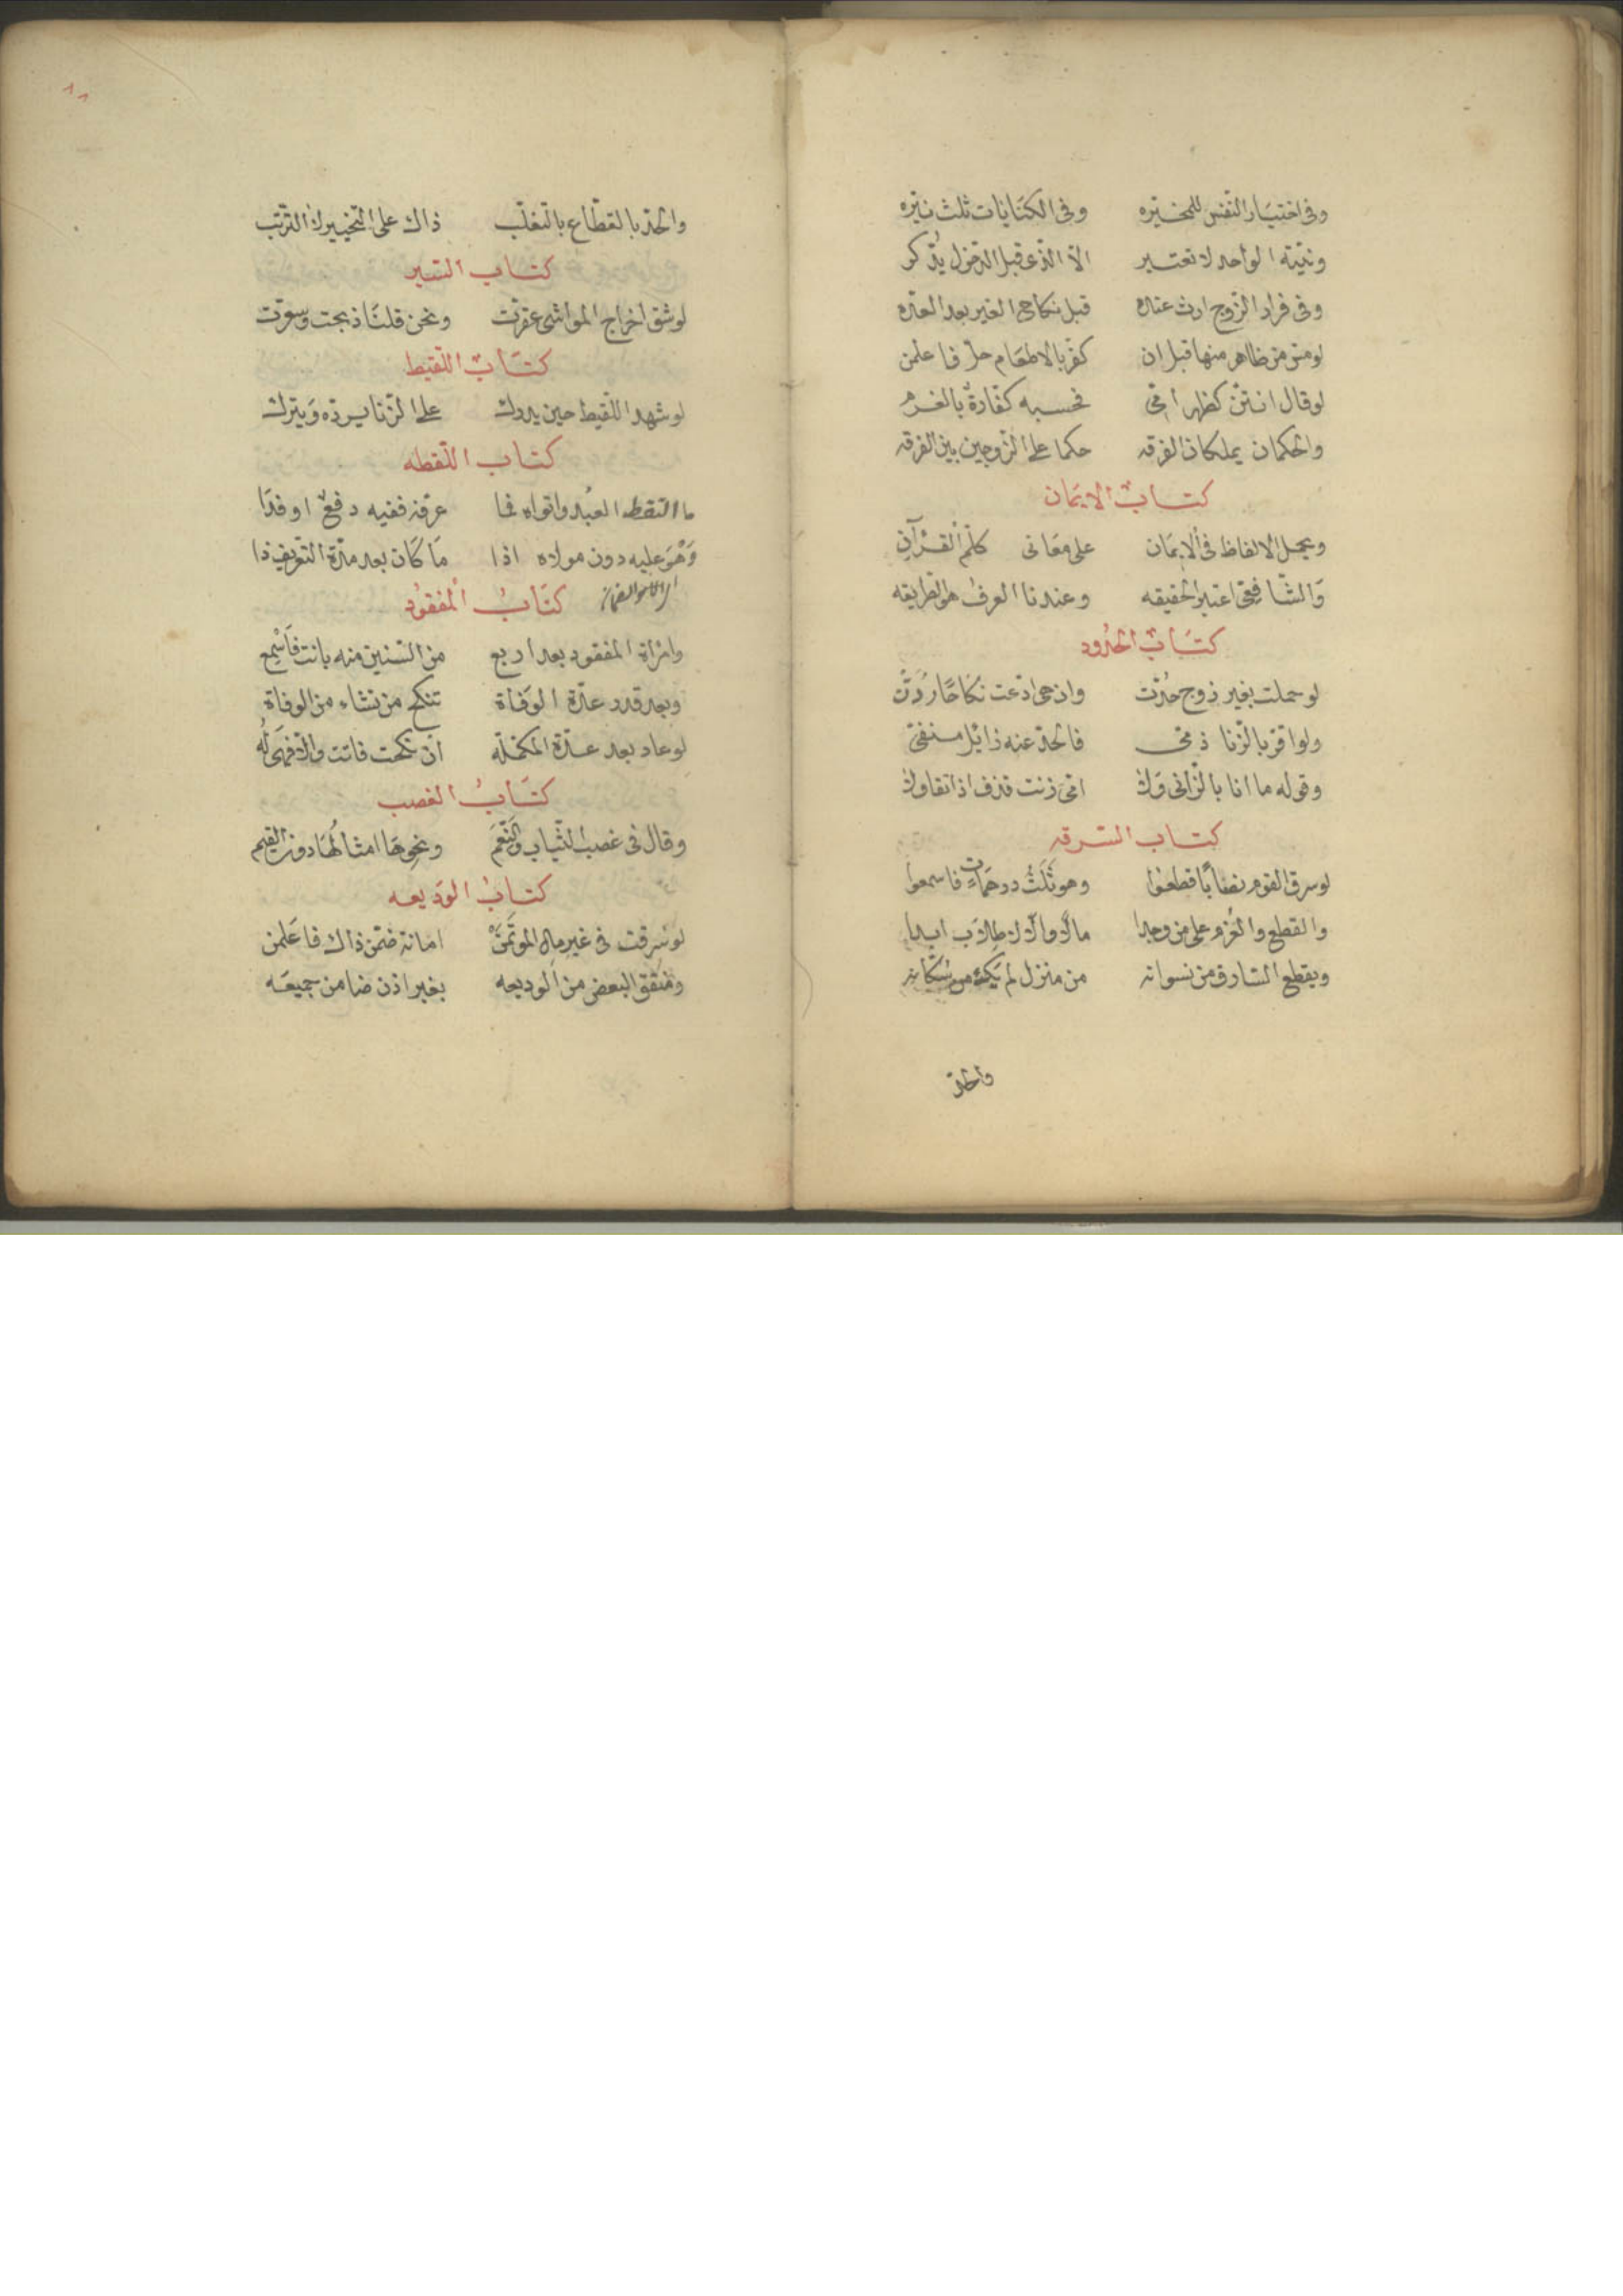 وفى اختيار النفس للمخيره وفى الكنايات ثلث نيره
ونية الواحد لا تعتبر الا الذى قبل الدخول يذكر
وفى فرار الزوج ارث عنده قبل نكاح الغير بعد العده
لو من ظاهر منها قبل ان كفر بالاطعام حل فاعلمن
لو قال انتن كظهر امى فحسبه كفارة بالغرم
والحكمان يملكان الفرقه حكما على الزوجين بين الفرقه
كتاب الايمان
ويحمل الالفاظ فى الايمان على معانى كلم القرآن
والشافعى اعتبر الحقيقه وعندنا العرف هو الطريقه
كتاب الحدود
لو حملت بغير زوج حدت وان هى ادعت نكاحا ردت
ولو اقر بالزنا ذمى فالحد عنه زائل منفى
وقوله ما انا بالزانى ولا امى زنت قذف اذا تقاولا
كتاب السرقه
لو سرق القوم نصابا قطعوا وهو ثلث درهمات فاسمعوا
والقطع والغرم على من وجدا مالا والا لا طلاب ابدا
ويقطع السارق من نسوانه من منزل لم يك من سكانه
والحد
٨٨
والحد بالقطاع بالتغلب ذاك على التخيير لا الترتب
كتاب السير
لو شق اخراج المواشى عقرت ونحن قلنا ذبحت وسعرت
كتاب اللقيط
لو شهد اللقيط حين يدرك على الزنا يرده ويترك
كتاب اللقطه
ما التقط العبد واتواه فما عرفه ففيه دفع او فدا
وهو عليه دون مولاه اذا ما كان بعد مدة التعريف ذا
كتاب المفقود
وامرأة المفقود بعد اربع من السنين منه بانت فاسمع
وبعد قدر عدة الوفاة تنكح من تشاء من الوفاة
لو عاد بعد عدة المكمله ان نكحت فاتت والا فهى له
كتاب الغصب
وقال فى غصب الثياب والنعم ونحوها امثالها دون القيم
كتاب الوديعه
لو سرقت فى غير مال الموتمن امانة ضمن ذاك فاعلمن
ومنفق البعض من الوديعه بغير اذن ضامن جميعه